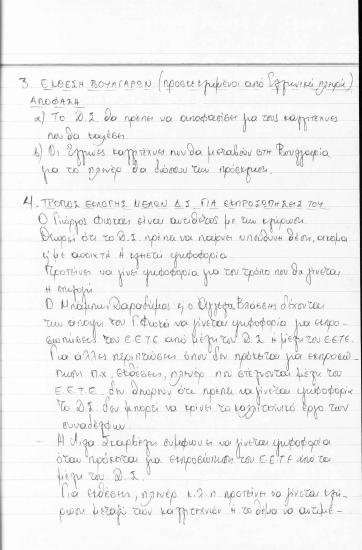 3. ΕΚΘΕΣΗ ΒΟΥΛΓΑΡΩΝ (προσκεκλημένοι από Ελληνική πλευρά)
ΑΠΟΦΑΣΗ
α) Το Δ.Σ. θα πρέπει να αποφασίσει για τους καλλιτέχνες
που θα καλέσει.
β) Οι Έλληνες καλλιτέχνες που θα μεταβούν στη Βουλγαρία
για το πλενέρ θα δώσουν την πρόσκληση.
4. ΤΡΟΠΟΣ ΕΚΛΟΓΗΣ ΜΕΛΩΝ Δ.Σ. ΓΙΑ ΕΚΠΡΟΣΩΠΗΣΕΙΣ ΤΟΥ
Ο Γιώργος είναι αντίθετος με την κλήρωση.
Θεωρεί ότι το Δ.Σ. πρέπει να παίρνει υπεύθυνη θέση, ακόμα
κι με ανοιχτή ή κλειστή ψηφοφορία
Προτείνει να γίνει ψηφοφορία για τον τρόπο που θα γίνεται
η επιλογή
Ο Μπάμπης κι ο Βλάσσης δέχονται
την άποψη του Γ. να γίνεται ψηφοφορία για εκπρο-
σωπήσεις του ΕΕΤΕ από μέλη του Δ.Σ. ή μέλη του ΕΕΤΕ.
Για άλλες περιπτώσεις όπου δεν πρόκειται για εκπροσώ-
πηση π.χ. εκθέσεις, πλενέρ που στέλνονται μέλη του
Ε.Ε.Τ.Ε. δεν θεωρούν ότι πρέπει να γίνεται ψηφοφορία
Το Δ.Σ. δεν μπορεί να κρίνει το καλλιτεχνικό έργο των
συναδέλφων.
– Η Λίζα συμφωνεί να γίνεται ψηφοφορία
όταν πρόκειται για εκπροσώπηση του Ε.Ε.Τ.Ε από τα
μέλη του Δ.Σ.
Για εκθέσεις, πλενέρ κ.λ.π. προτείνει να γίνεται κλή-
ρωση μεταξύ των καλλιτεχνών ή το θέμα να αντιμε-